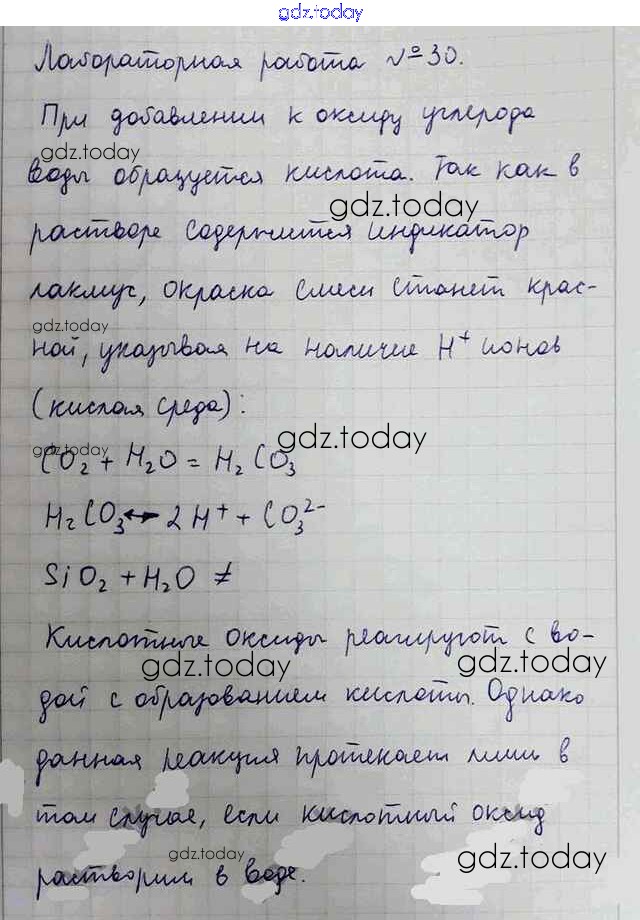 gdz.today
Лабораторная работа №30.
При добавлении к оксиду углерода
gdz.today
воды образуется кислота. Так как в
gdz.today
растворе содержится индикатор
лакмус, окраска смеси станет крас-
gdz.today
ной, указывая на наличие H⁺ ионов
(кислая среда):
gdz.today
gdz.today
CO₂ + H₂O = H₂CO₃
H₂CO₃ ↔ 2H⁺ + CO₃²⁻
SiO₂ + H₂O ≠
Кислотные оксиды реагируют с во-
gdz.today gdz.today
дой с образованием кислоты. Однако
данная реакция протекает лишь в
том случае, если кислотный оксид
gdz.today gdz.today
растворим в воде.